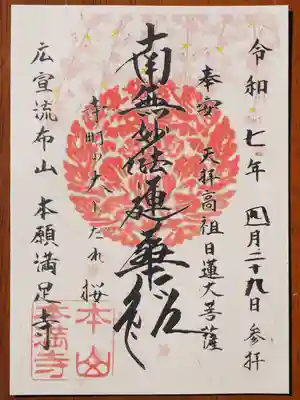 令和七年 四月二十九日 参拝
奉安 天拝高祖日蓮大菩薩
南無妙法蓮華経
寺町の大しだれ桜
広宣流布山 本願満足寺
本山
本満寺